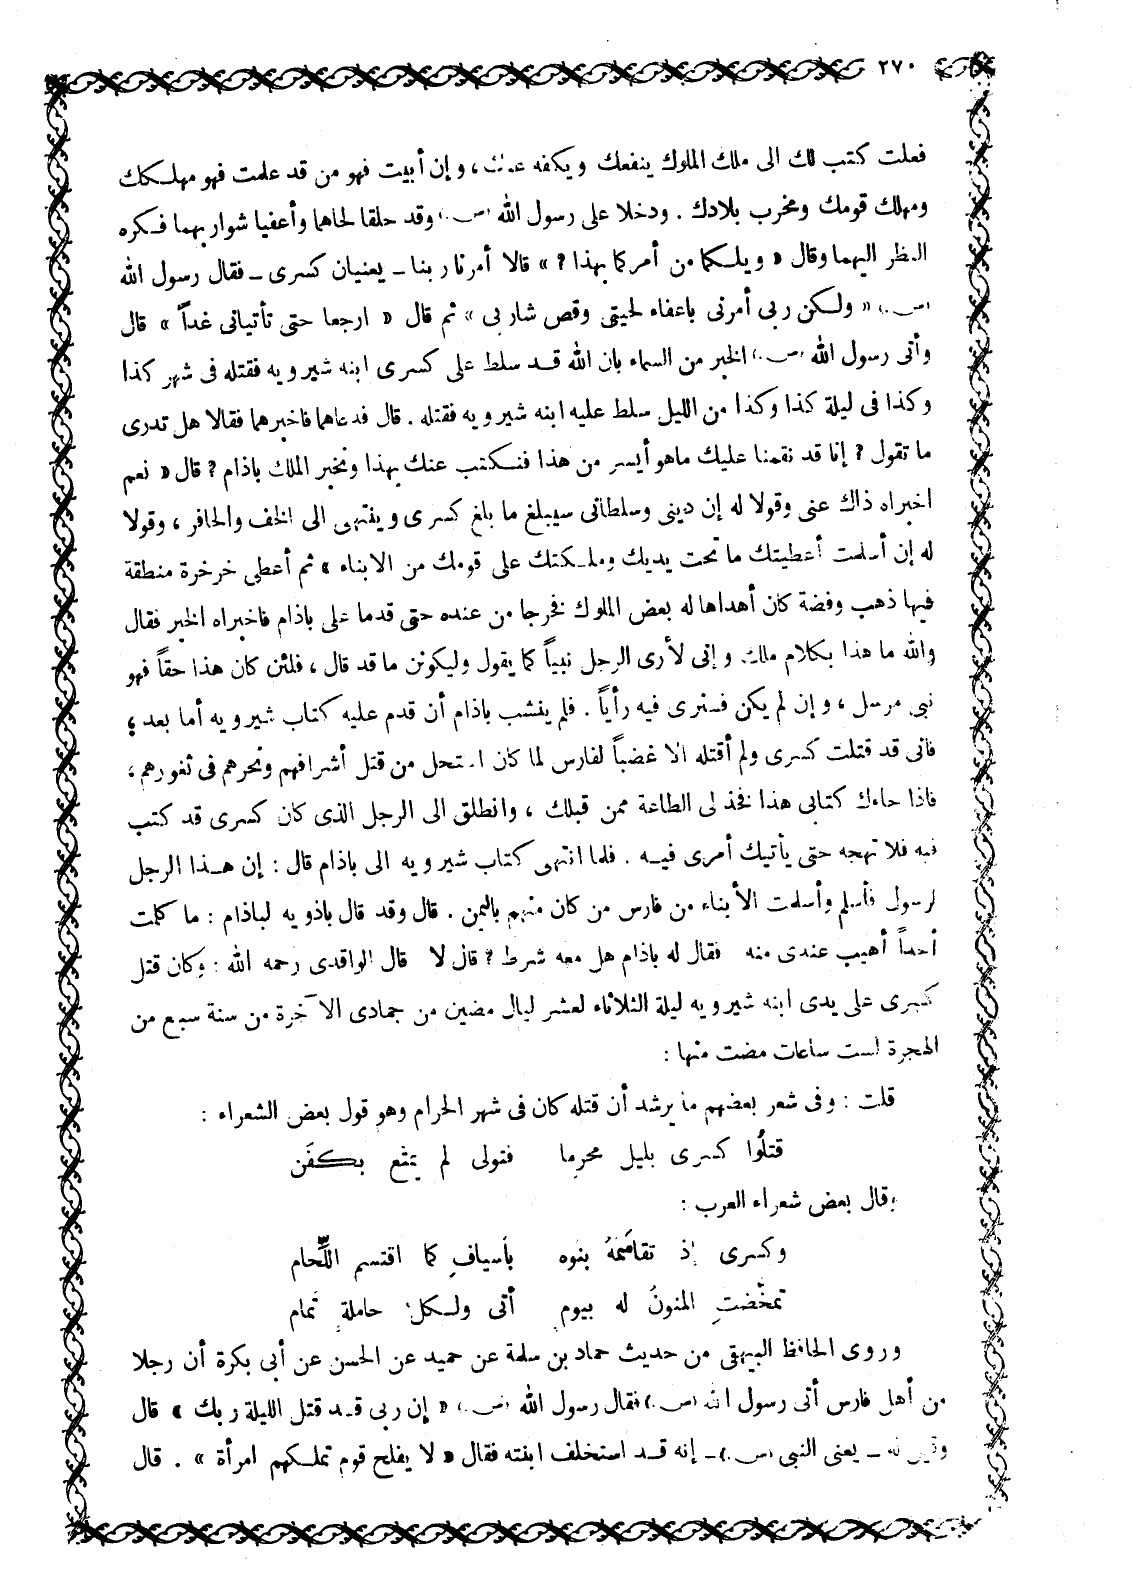 ٢٧٠
فعلت كتب لك الى ملك الملوك ينفعك ويكفه عنك ، وإن أبيت فهو من قد علمت فهو مهلكك
ومهلك قومك ومخرب بلادك . ودخلا على رسول الله (ص.) وقد حلقا لحاهما وأعفيا شواربهما فكره
النظر اليهما وقال « ويلكما من أمركما بهذا ؟ » قالا أمرنا ربنا ــ يعنيان كسرى ــ فقال رسول الله
(ص.) « ولكن ربى أمرنى باعفاء لحيتى وقص شاربى » ثم قال « ارجعا حتى تأتيانى غداً » قال
وأتى رسول الله (ص.) الخبر من السماء بان الله قد سلط على كسرى ابنه شيرويه فقتله فى شهر كذا
وكذا فى ليلة كذا وكذا من الليل سلط عليه ابنه شيرويه فقتله . قال فدعاهما فاخبرهما فقالا هل تدرى
ما تقول ؟ إنا قد نقمنا عليك ماهو أيسر من هذا فنكتب عنك بهذا ونخبر الملك باذام ؟ قال « نعم
اخبراه ذاك عنى وقولا له إن دينى وسلطانى سيبلغ ما بلغ كسرى وينتهى الى الخف والحافر ، وقولا
له إن أسلمت أعطيتك ما تحت يديك وملكتك على قومك من الابناء » ثم أعطى خرخرة منطقة
فيها ذهب وفضة كان أهداها له بعض الملوك فخرجا من عنده حتى قدما على باذام فاخبراه الخبر فقال
والله ما هذا بكلام ملك وإنى لأرى الرجل نبياً كما يقول وليكونن ما قد قال ، فلئن كان هذا حقاً فهو
نبى مرسل ، وإن لم يكن فسنرى فيه رأياً . فلم ينشب باذام أن قدم عليه كتاب شيرويه أما بعد ؛
فانى قد قتلت كسرى ولم أقتله الا غضباً لفارس لما كان استحل من قتل أشرافهم ونحرهم فى ثغورهم ،
فاذا جاءك كتابى هذا فخذ لى الطاعة ممن قبلك ، وانطلق الى الرجل الذى كان كسرى قد كتب
فيه فلا تهجه حتى يأتيك أمرى فيه . فلما انتهى كتاب شيرويه الى باذام قال : إن هذا الرجل
لرسول فأسلم وأسلمت الأبناء من فارس من كان منهم باليمن . قال وقد قال باذويه لباذام : ما كلمت
أحداً أهيب عندى منه فقال له باذام هل معه شرط ؟ قال لا قال الواقدى رحمه الله : وكان قتل
كسرى على يدى ابنه شيرويه ليلة الثلاثاء لعشر ليال مضين من جمادى الآخرة من سنة سبع من
الهجرة لست ساعات مضت منها :
قلت : وفى شعر بعضهم ما يرشد أن قتله كان فى شهر الحرام وهو قول بعض الشعراء :
قتلُوا كسرى بليل محرِما فتولى لم يمتّع بكفَن
وقال بعض شعراء العرب :
وكسرى إذ تقاسَمهُ بنوه بأسيافٍ كما اقتسم اللِّحام
تمخّضتِ المنونُ له بيومٍ أتى ولكل حاملةٍ تمام
وروى الحافظ البيهقى من حديث حماد بن سلمة عن حميد عن الحسن عن أبى بكرة أن رجلا
من أهل فارس أتى رسول الله (ص.) فقال رسول الله (ص.) « إن ربى قد قتل الليلة ربك » قال
وقيل له ــ يعنى النبى (ص.) ــ إنه قد استخلف ابنته فقال « لا يفلح قوم تملكهم امرأة » . قال